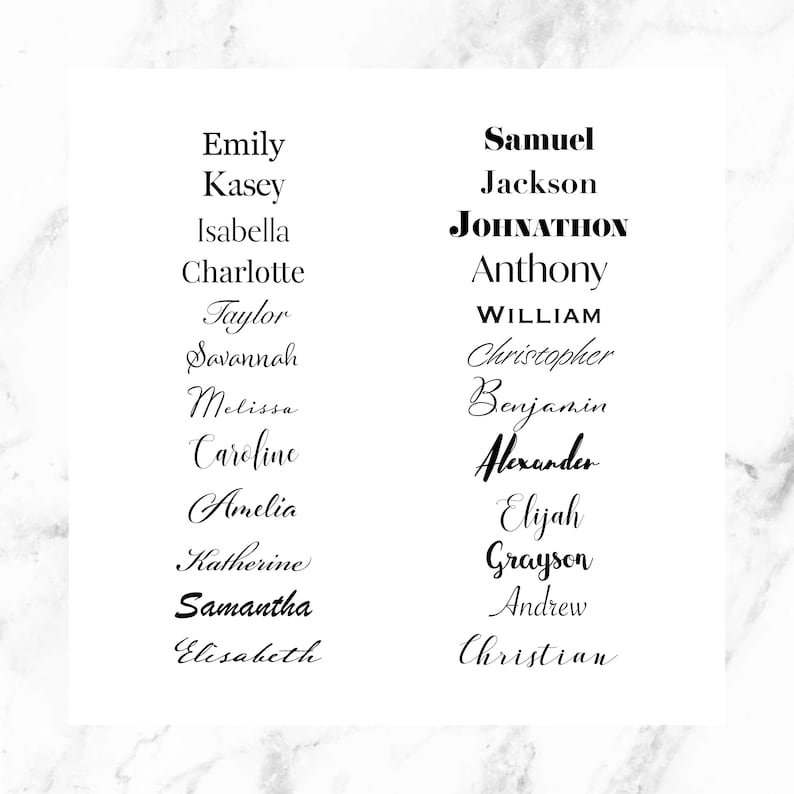 Emily
Kasey
Isabella
Charlotte
Taylor
Savannah
Melissa
Caroline
Amelia
Katherine
Samantha
Elisabeth
Samuel
Jackson
JOHNATHON
Anthony
WILLIAM
Christopher
Benjamin
Alexander
Elijah
Grayson
Andrew
Christian